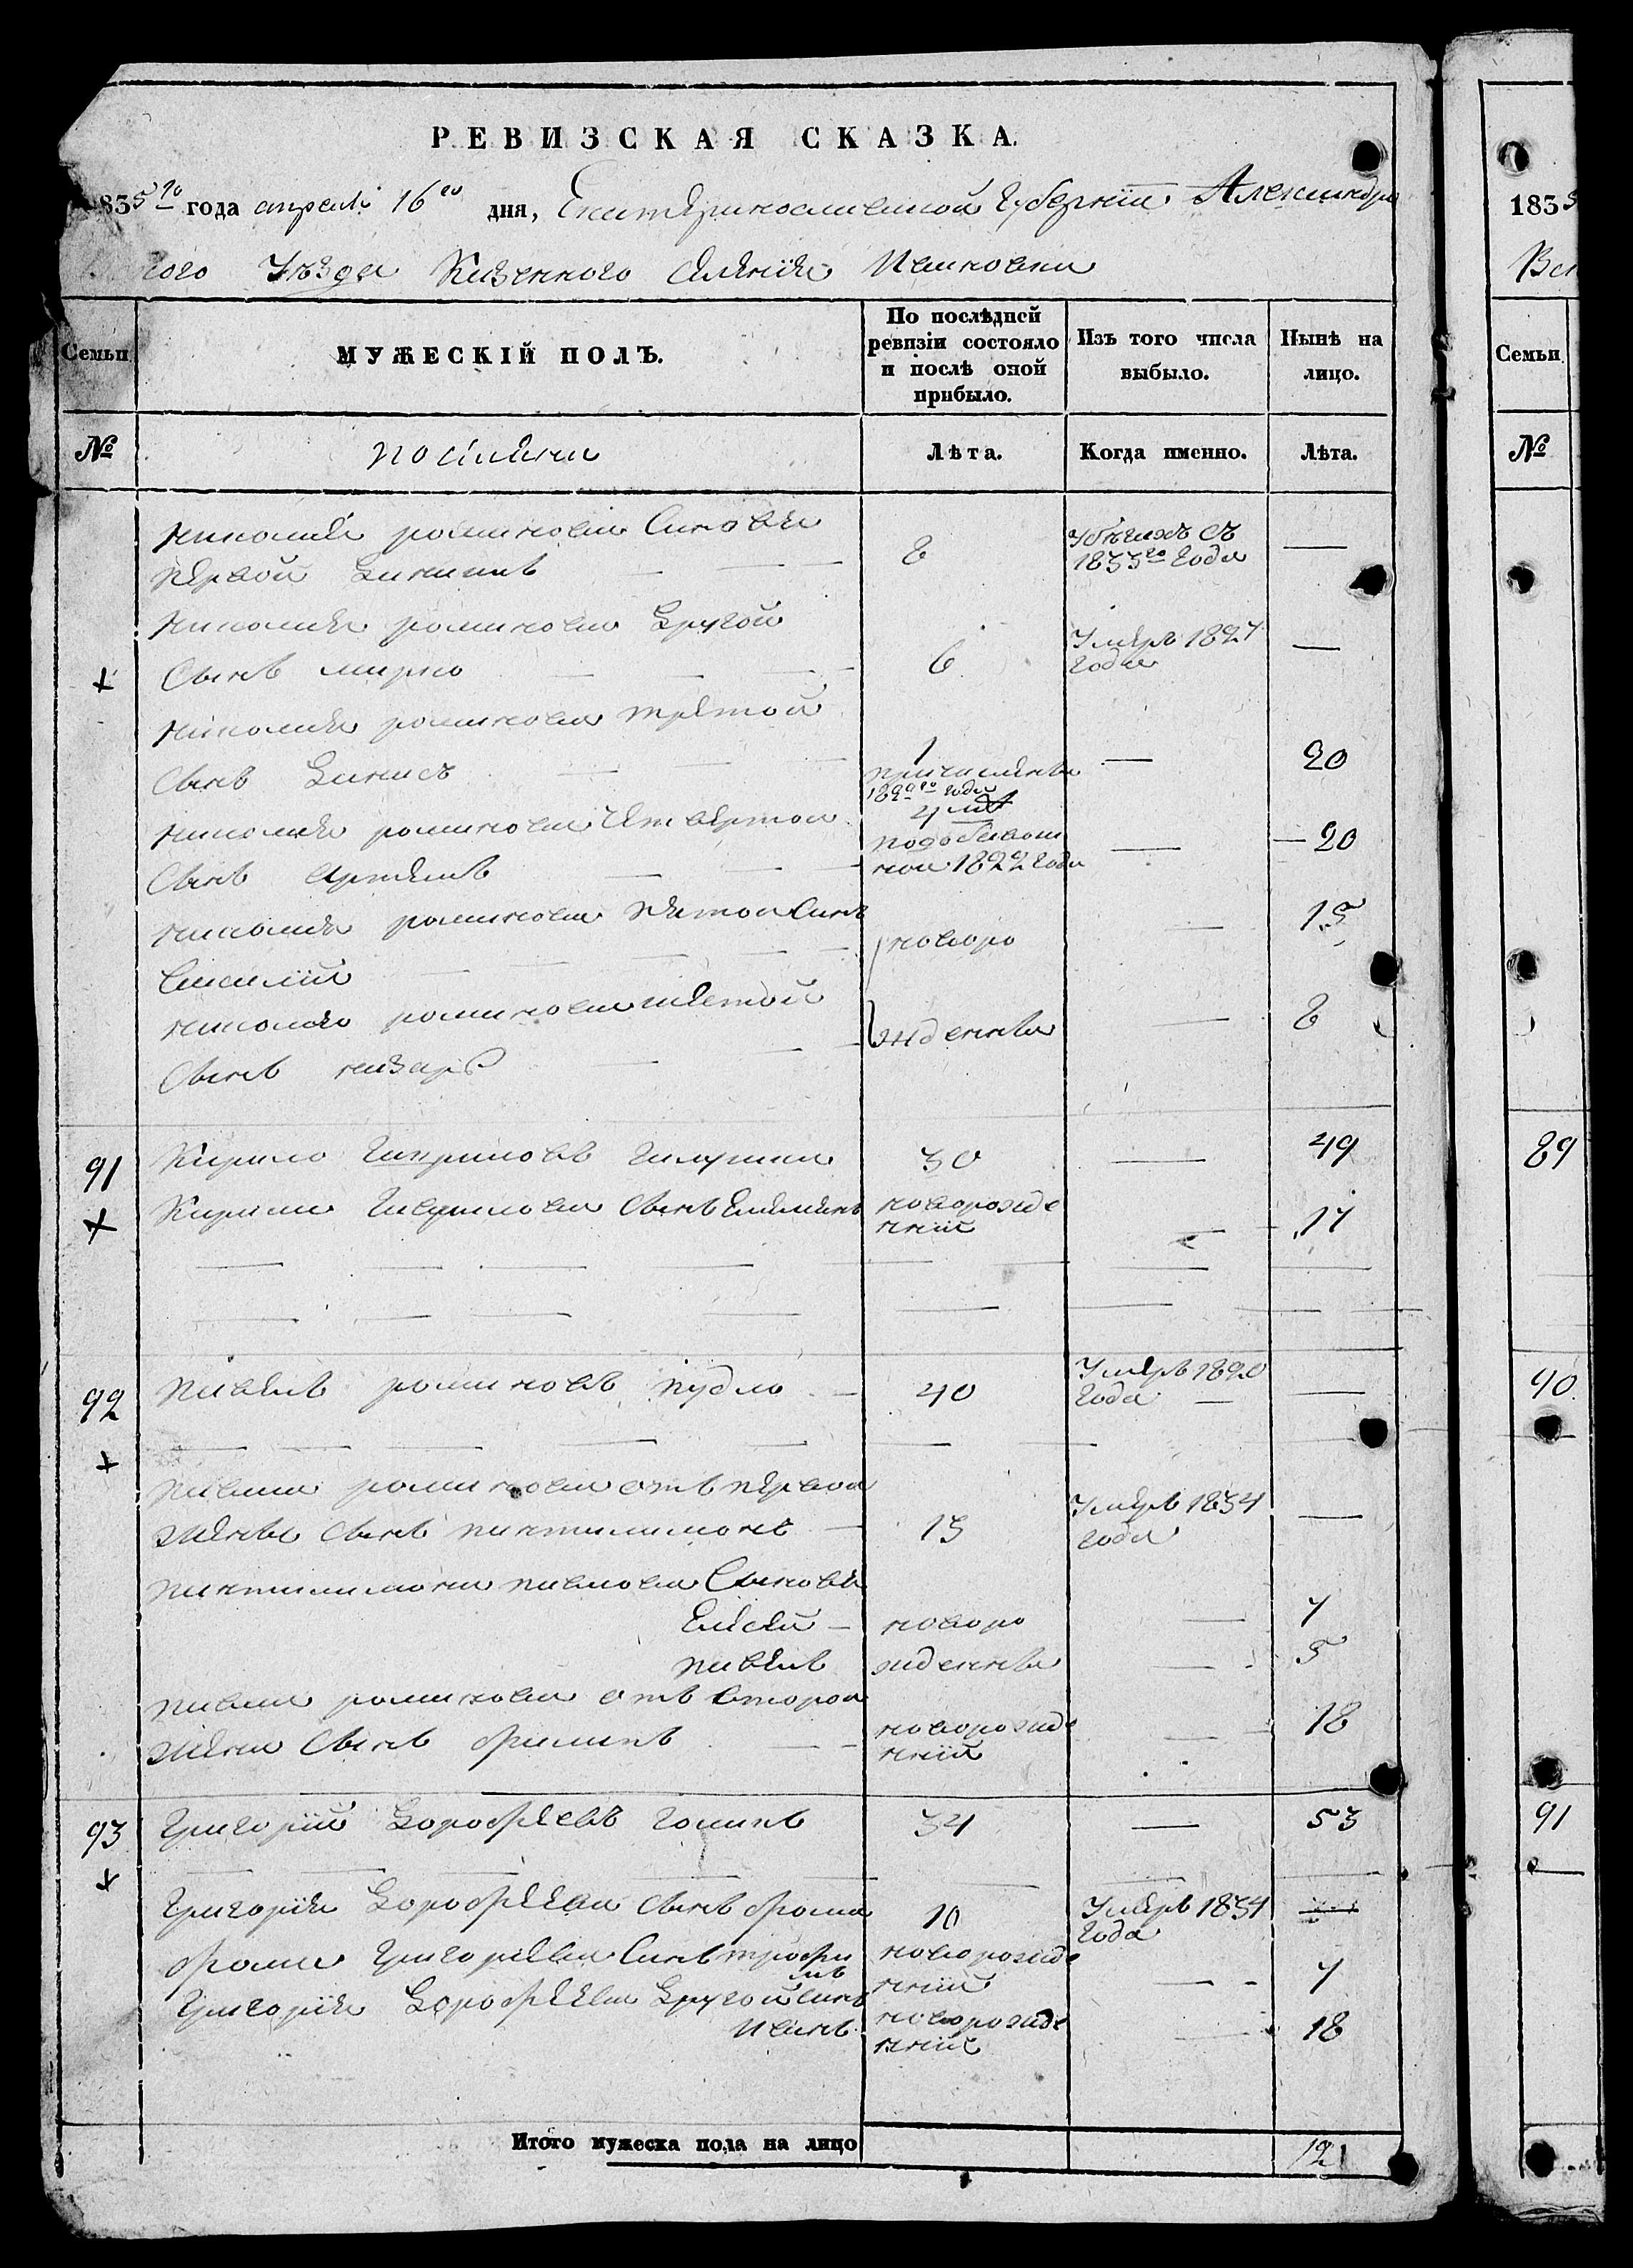 РЕВИЗСКАЯ СКАЗКА.
1835го года апреля 16го дня, Екатеринославской Губернии Александро
вского Уезда Казенного Селения Ивановки
Семьи
МУЖЕСКІЙ ПОЛЪ.
По послѣдней ревизіи состояло и послѣ оной прибыло.
Изъ того числа выбыло.
Нынѣ на лицо.
№
поселяне
Лѣта.
Когда именно.
Лѣта.
Николая романова Синовья
первой Данилъ 8 съ 1833го года —
Николая романова Другой
Сынъ марко 6 Умеръ 1827 года —
Николая романова третой
Сынъ Денисъ 1 — 20
причислены 1822го года
Николая романова Четвертой
Сынъ артемъ 4 лет 1822 года — 20
Николая романова пятой Синъ
василий новоро — 15
Николая романова шестой
Сынъ назаръ жденны — 8
91 Кирило Гавриловъ 30 — 49
Кирила Гаврилова Сынъ Емелянъ новорожденний — 17
92 павелъ романовъ пудло 40 Умеръ 1820 года —
павла романова отъ первой
жены Сынъ пантилимонъ 15 Умеръ 1834 года —
пантилимона павлова Сыновья
Елисей — новоро — 7
павелъ жденны — 5
павла романова отъ второй
жены Сынъ филипъ новорожденний — 18
93 Григорий Дорофеевъ 34 — 53
Григория Дорофеева Сынъ фома 10 Умеръ 1834 года —
фомы Григориева Синъ трофимъ новорожденний — 7
Григория Дорофеева Другой синъ
иванъ новорожденний — 18
Итого мужеска пола на лицо 12
183
Семьи
№
89
90
91